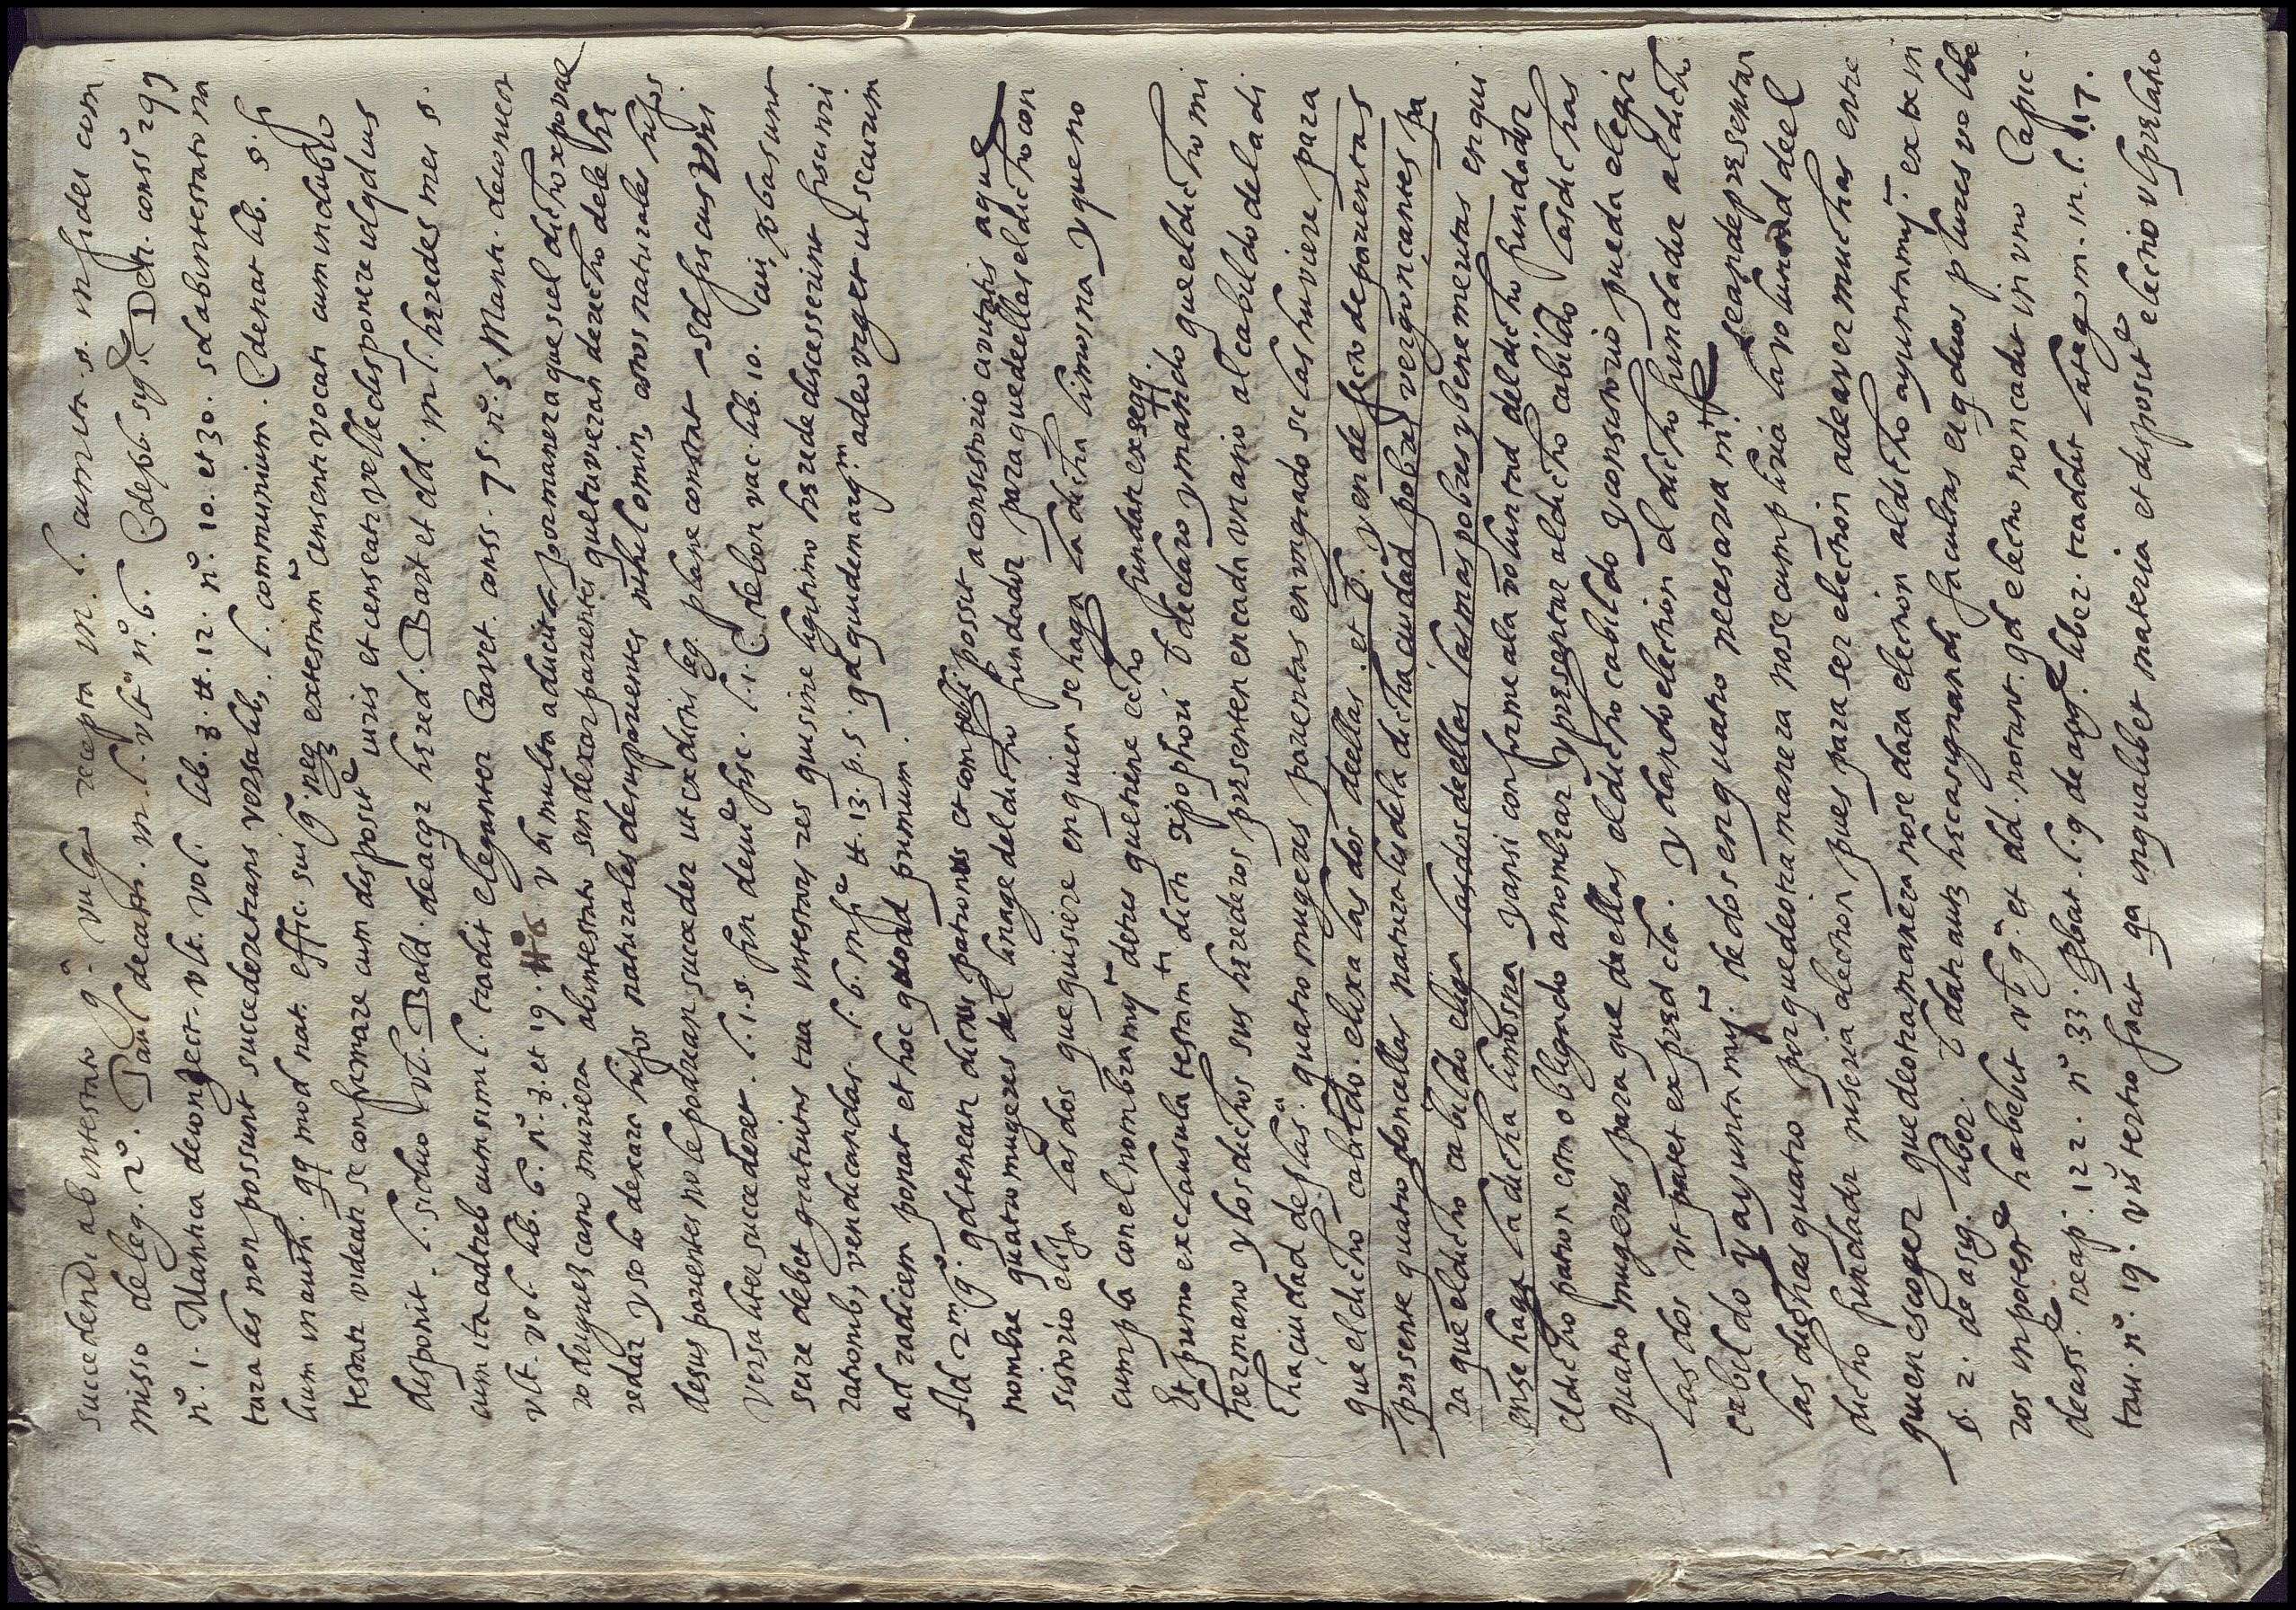 succedendi ab intestato q.ª vulgr recepta in. l. cum ita. s. in fidei com
misso de leg. 2º. Paul de castr. in l. ult.ª nº. 6. Decr. conss 299
nº. 1. Mantica de coniect. ult. vol. lib. 8. tt. 12. nº. 10. et 30. sed ab intestato na
turales non possunt succedere trans versalib, l. communium. C de nat lib. s. f
lium in auth. qq mod nat. effic. sui q. neq extestam.º censentr vocati cum in dubio
testatr videatr se confirmare cum disposit.e iuris et censeatr velle disponere id qd ius
disponit. l. si duo ut. Bald. de acqr hered. Bart et dd. in l. heredes mei s.
cum ita ad treb cum simi l. tradit eleganter Gravet. conss. 75. nº. 5. Manti. de coniect
ult. vol. lib. 6. nº. 3. et 19. ubi multa aducit por manera que si el dicho xpoval
rodriguez cano muriera abintestato sin dexar parientes que tuvieran derecho de le he
redar y solo dexara hijos naturales de sus parientes nihilomin, estos naturales hijos
de sus parientes no le podrian suceder ut ex dictis leg. plane constat sed fiscus
versaliter succederet. l. 1. s. fin de iure fisc. l. 1. C. de bon vac. lib. 10. cui, pbasunt
seire debet gratuitus tua intestatr res qui sine legitimo herede discesserint fisci nri
rationib, vendicandas. l. 6. inf.e tt. 13. p. 5. qd quidem arg.m adeo urget ut securum
ad radicem ponat et hoc quoad primum.
Ad 2.m q. qd teneatr dictus patronus et compelli possit a consistorio civitatis a que
nombre quatro mugeres del linage del dicho fundador para que de ellas el dicho con
sistorio elija las dos que quisiere en quien se haga la dicha limosna y que no
cumpla con el nombramy.º de tres que tiene echo fundatr ex seqq.
Et primo ex clausula testam.ti dicti xpophori v declaro y mando que el dicho mi
hermano y los dichos sus herederos presenten en cada un año al cabildo de la di
cha ciudad de plas.ª quatro mugeres parientas en mi grado si las huviere para
que el dicho cabildo. elixa las dos dellas. et v. y en defecto de parientas
presente quatro donzellas naturales de la dicha ciudad pobres vergonçantes pa
ra que el dicho cabildo elija las dos dellas las mas pobres y benemeritas en qui
en se haga la dicha limosna y ansi conforme a la voluntad del dicho fundador
el dicho patron esta obligado a nombrar y presentar al dicho cabildo las dichas
quatro mugeres para que de ellas el dicho cabildo y consistorio pueda elegir
las dos ut patet ex predicta. y dando election el dicho fundador al dicho
cabildo y ayuntamy.º de dos en quatro necesaria m.te se an de presentar
las dichas quatro porque de otra manera no se cumpliria la voluntad de el
dicho fundador ni seria election pues para ser election a de aver muchas entre
quien escoger que de otra manera no se dara election al dicho ayuntamy.º ex tx in
s. 2. de asig. liber. v datr autz hec asignandi facultas ei qd duos plures ve libe
ros in potest.e habebit ubi gª et dd. notant. qd electio non cadit in uno Capic.
decis.e neap. 122. nº. 33. pbat. l. 9 de asig.e liber. tradit late gom. in. l. 17.
tau. nº. 19. ubi tertio facit qa in qualibet materia et disposit.e electio ul prelatio